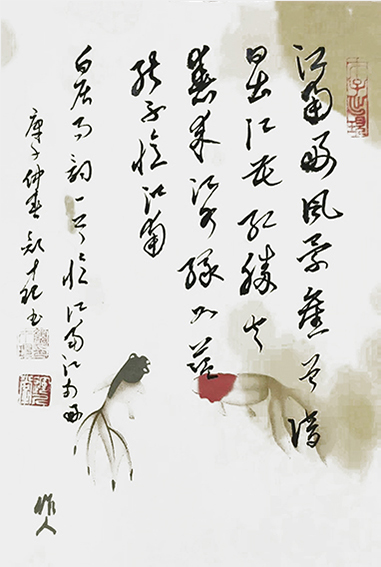 江南好风景旧曾谙
日出江花红胜火
春来江水绿如蓝
能不忆江南
白居易词一首忆江南江南好
庚子仲春
作人